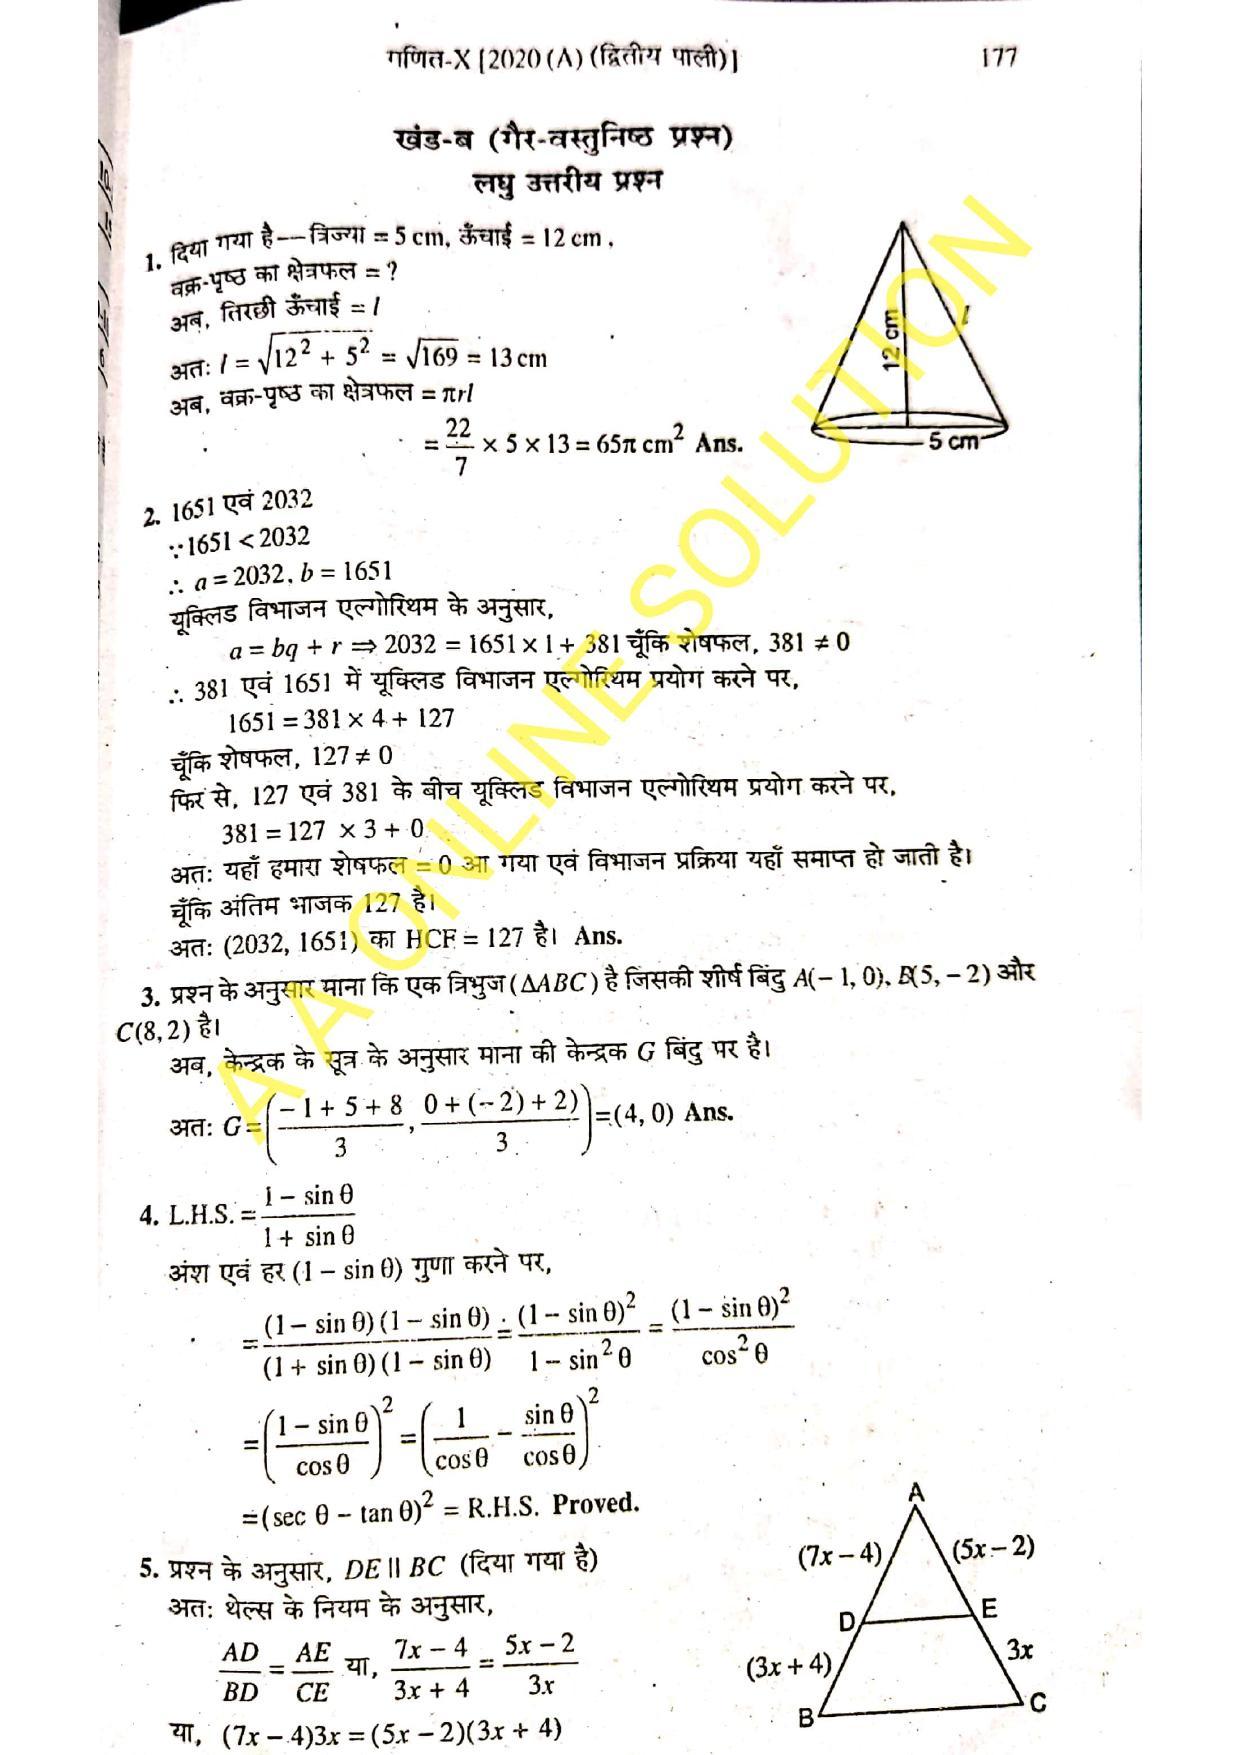 गणित-X [2020 (A) (द्वितीय पाली)] 177
खंड-ब (गैर-वस्तुनिष्ठ प्रश्न)
लघु उत्तरीय प्रश्न
1. दिया गया है—त्रिज्या = 5 cm, ऊँचाई = 12 cm,
वक्र-पृष्ठ का क्षेत्रफल = ?
अब, तिरछी ऊँचाई = l
अतः l = √(12² + 5²) = √169 = 13 cm
अब, वक्र-पृष्ठ का क्षेत्रफल = πrl
= 22/7 × 5 × 13 = 65π cm² Ans.
12 cm
l
5 cm
2. 1651 एवं 2032
∵ 1651 < 2032
∴ a = 2032, b = 1651
यूक्लिड विभाजन एल्गोरिथम के अनुसार,
a = bq + r ⇒ 2032 = 1651 × 1 + 381 चूँकि शेषफल, 381 ≠ 0
∴ 381 एवं 1651 में यूक्लिड विभाजन एल्गोरिथम प्रयोग करने पर,
1651 = 381 × 4 + 127
चूँकि शेषफल, 127 ≠ 0
फिर से, 127 एवं 381 के बीच यूक्लिड विभाजन एल्गोरिथम प्रयोग करने पर,
381 = 127 × 3 + 0
अतः यहाँ हमारा शेषफल = 0 आ गया एवं विभाजन प्रक्रिया यहाँ समाप्त हो जाती है।
चूँकि अंतिम भाजक 127 है।
अतः (2032, 1651) का HCF = 127 है। Ans.
3. प्रश्न के अनुसार माना कि एक त्रिभुज (ΔABC) है जिसकी शीर्ष बिंदु A(– 1, 0), B(5, – 2) और
C(8, 2) है।
अब, केन्द्रक के सूत्र के अनुसार माना की केन्द्रक G बिंदु पर है।
अतः G = ((– 1 + 5 + 8)/3, (0 + (– 2) + 2))/3) = (4, 0) Ans.
4. L.H.S. = (1 – sin θ)/(1 + sin θ)
अंश एवं हर (1 – sin θ) गुणा करने पर,
= (1 – sin θ)(1 – sin θ)/(1 + sin θ)(1 – sin θ) = (1 – sin θ)²/(1 – sin² θ) = (1 – sin θ)²/cos² θ
= ((1 – sin θ)/cos θ)² = (1/cos θ – sin θ/cos θ)²
= (sec θ – tan θ)² = R.H.S. Proved.
5. प्रश्न के अनुसार, DE || BC (दिया गया है)
अतः थेल्स के नियम के अनुसार,
AD/BD = AE/CE या, (7x – 4)/(3x + 4) = (5x – 2)/3x
या, (7x – 4)3x = (5x – 2)(3x + 4)
A
(7x – 4) (5x – 2)
D E
(3x + 4) 3x
B C
A A ONLINE SOLUTION